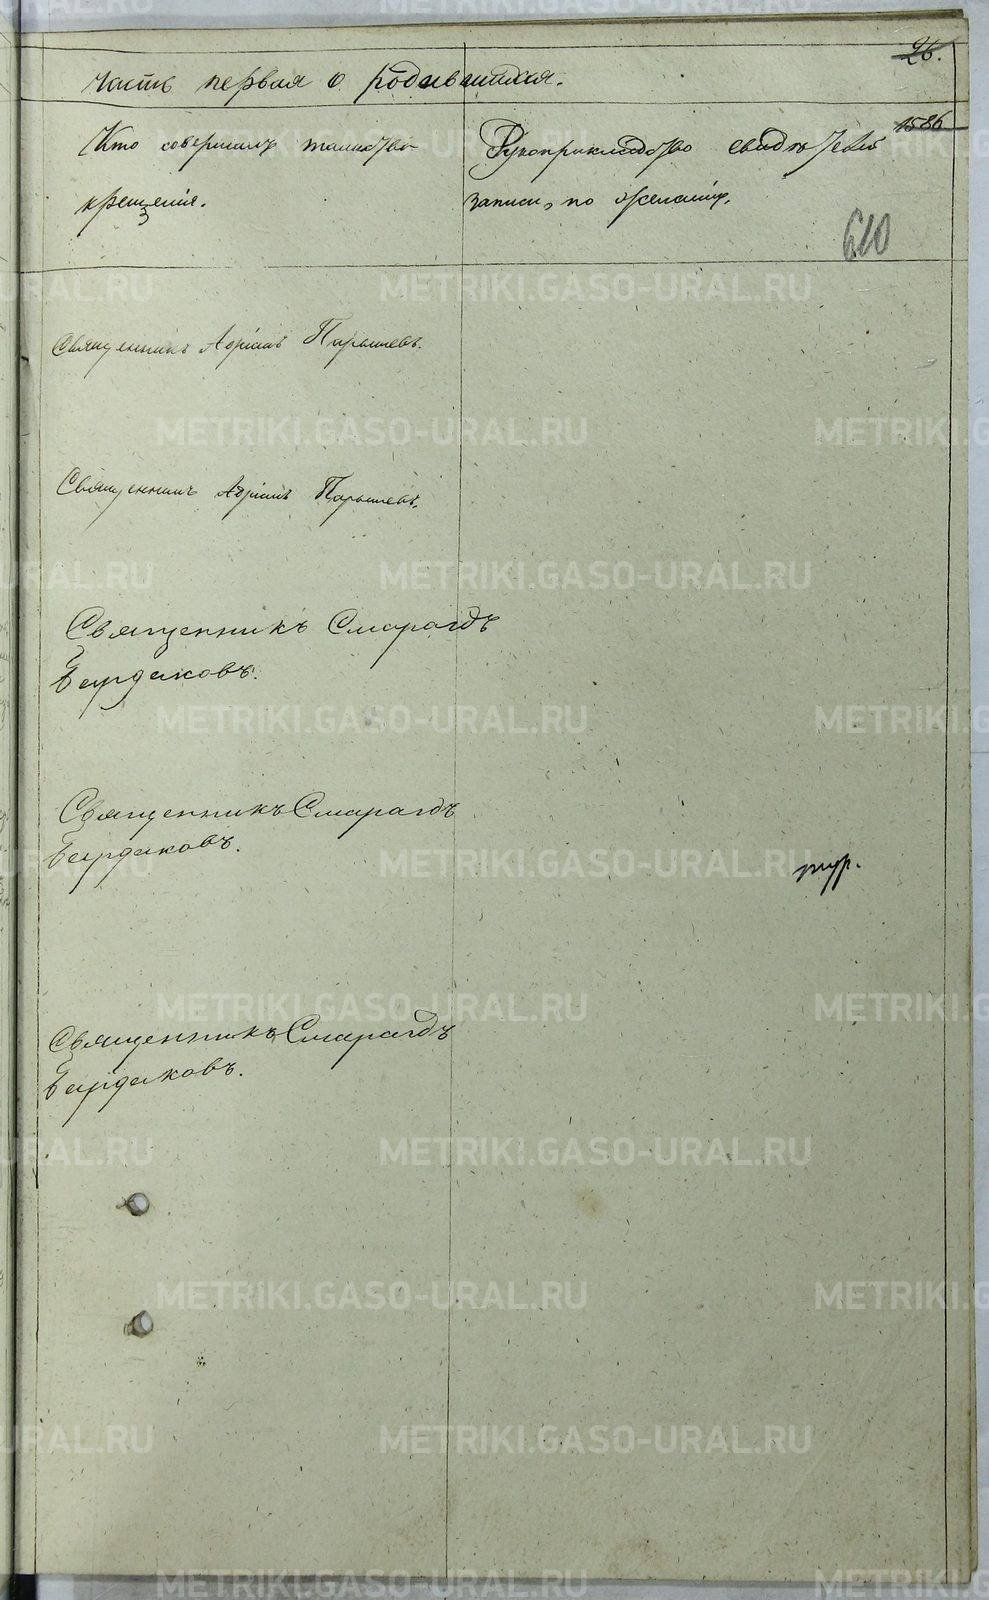 26.
Часть первая о родившихся.
1586
Кто совершилъ таинство
крещенія.
Рукоприкладство свидѣтелей
записи, по желанію.
610
Священникъ Адріанъ Парышевъ.
Священникъ Адріанъ Парышевъ.
Священникъ Смарагдъ
Бурдуковъ.
Священникъ Смарагдъ
Бурдуковъ.
Священникъ Смарагдъ
Бурдуковъ.
METRIKI.GASO-URAL.RU